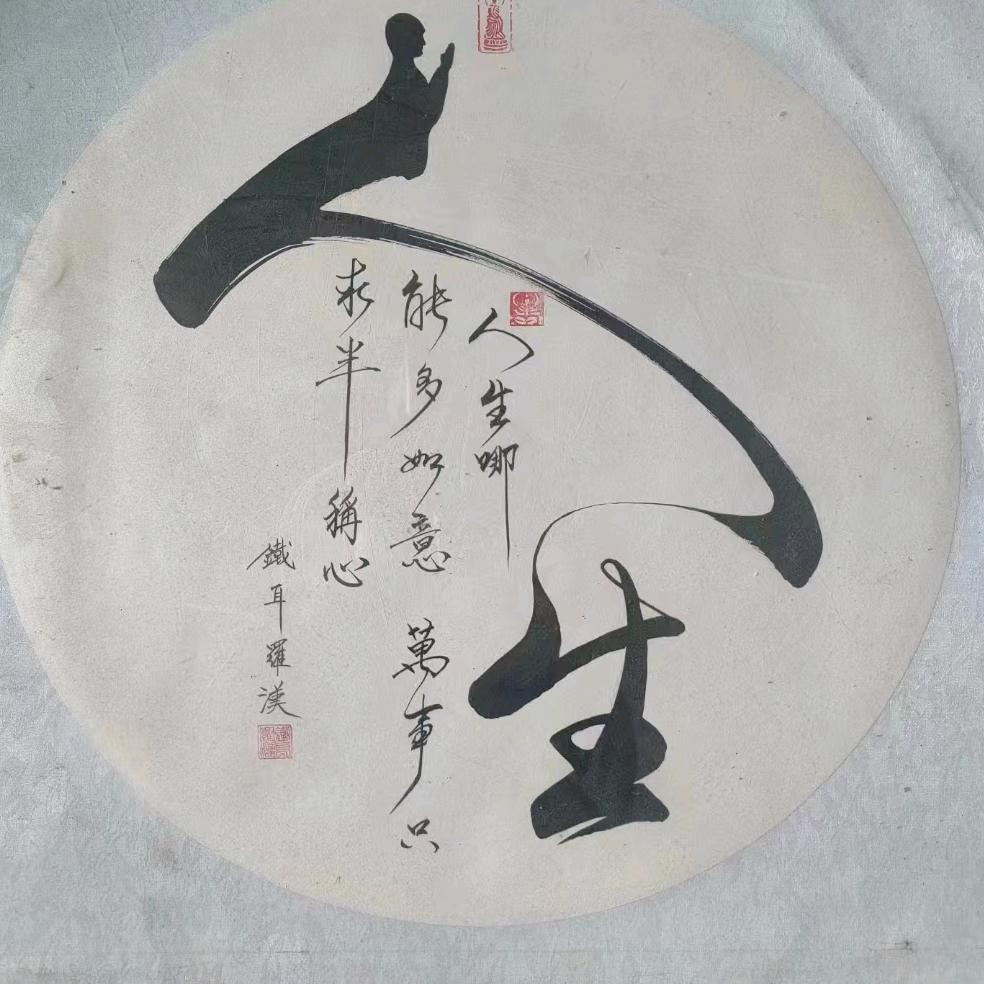 人生
人生哪
能多如意 萬事只
求半稱心
鐵耳羅漢